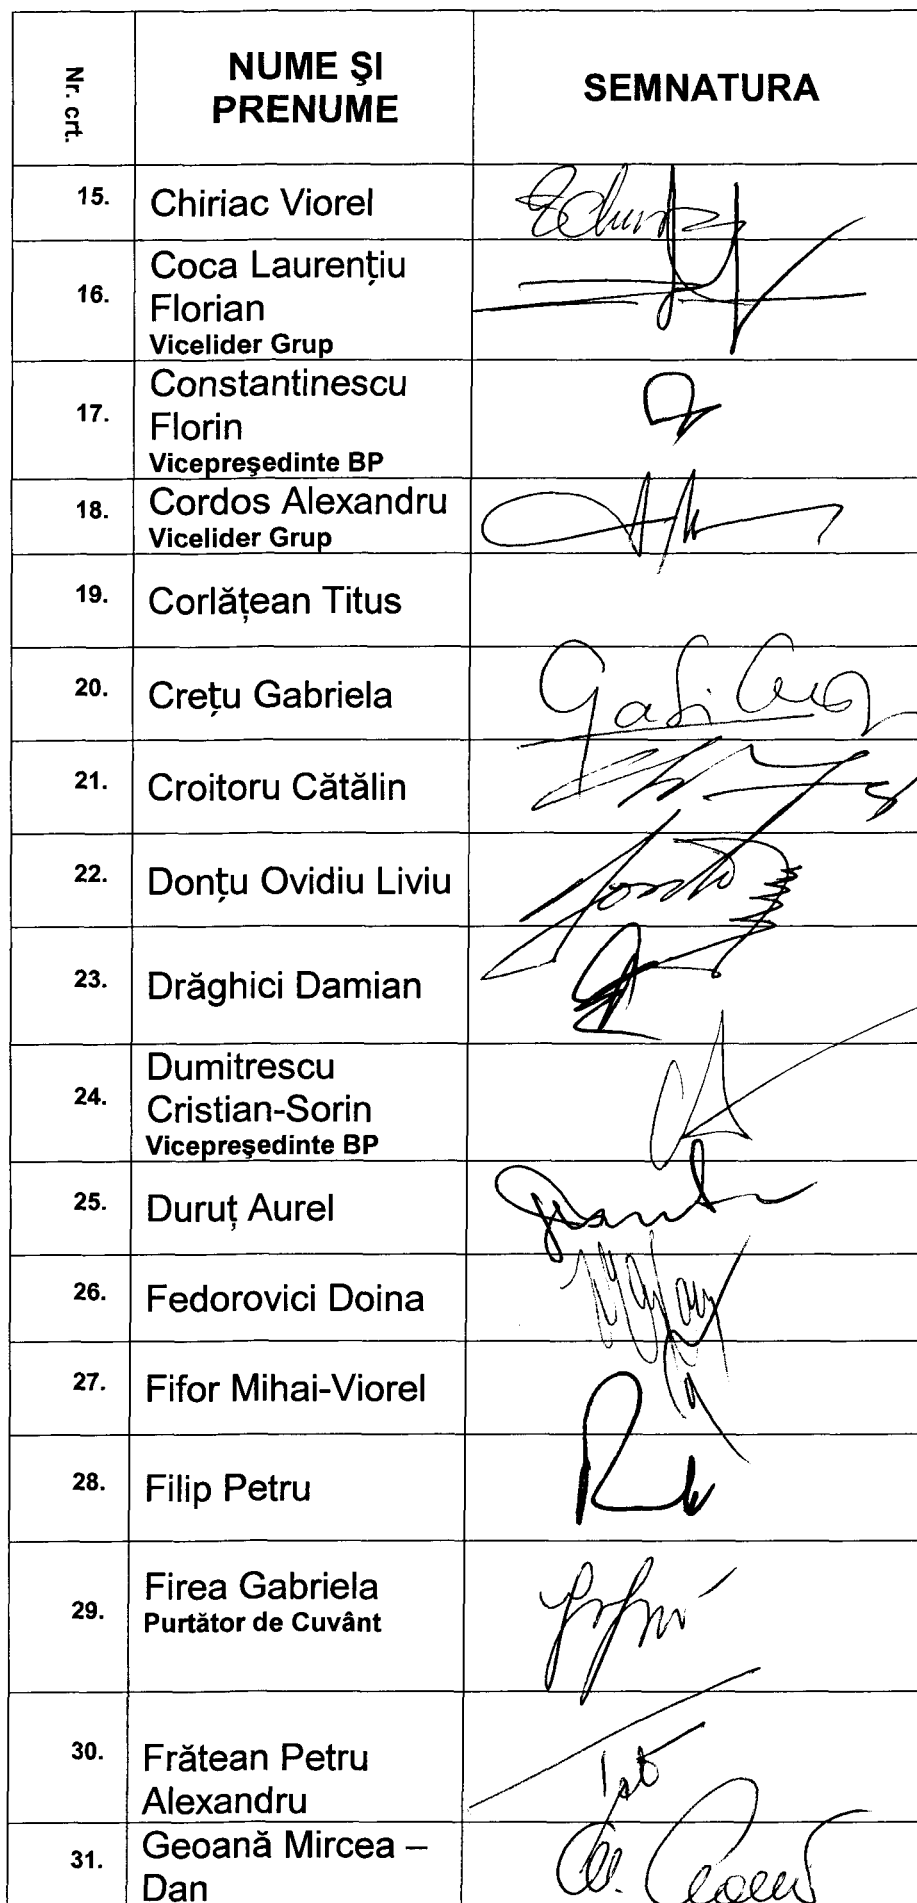 Nr. crt.
NUME ŞI
PRENUME
SEMNATURA
15.
Chiriac Viorel
16.
Coca Laurențiu
Florian
Vicelider Grup
17.
Constantinescu
Florin
Vicepreşedinte BP
18.
Cordos Alexandru
Vicelider Grup
19.
Corlățean Titus
20.
Crețu Gabriela
21.
Croitoru Cătălin
22.
Donțu Ovidiu Liviu
23.
Drăghici Damian
24.
Dumitrescu
Cristian-Sorin
Vicepreşedinte BP
25.
Duruț Aurel
26.
Fedorovici Doina
27.
Fifor Mihai-Viorel
28.
Filip Petru
29.
Firea Gabriela
Purtător de Cuvânt
30.
Frătean Petru
Alexandru
31.
Geoană Mircea –
Dan